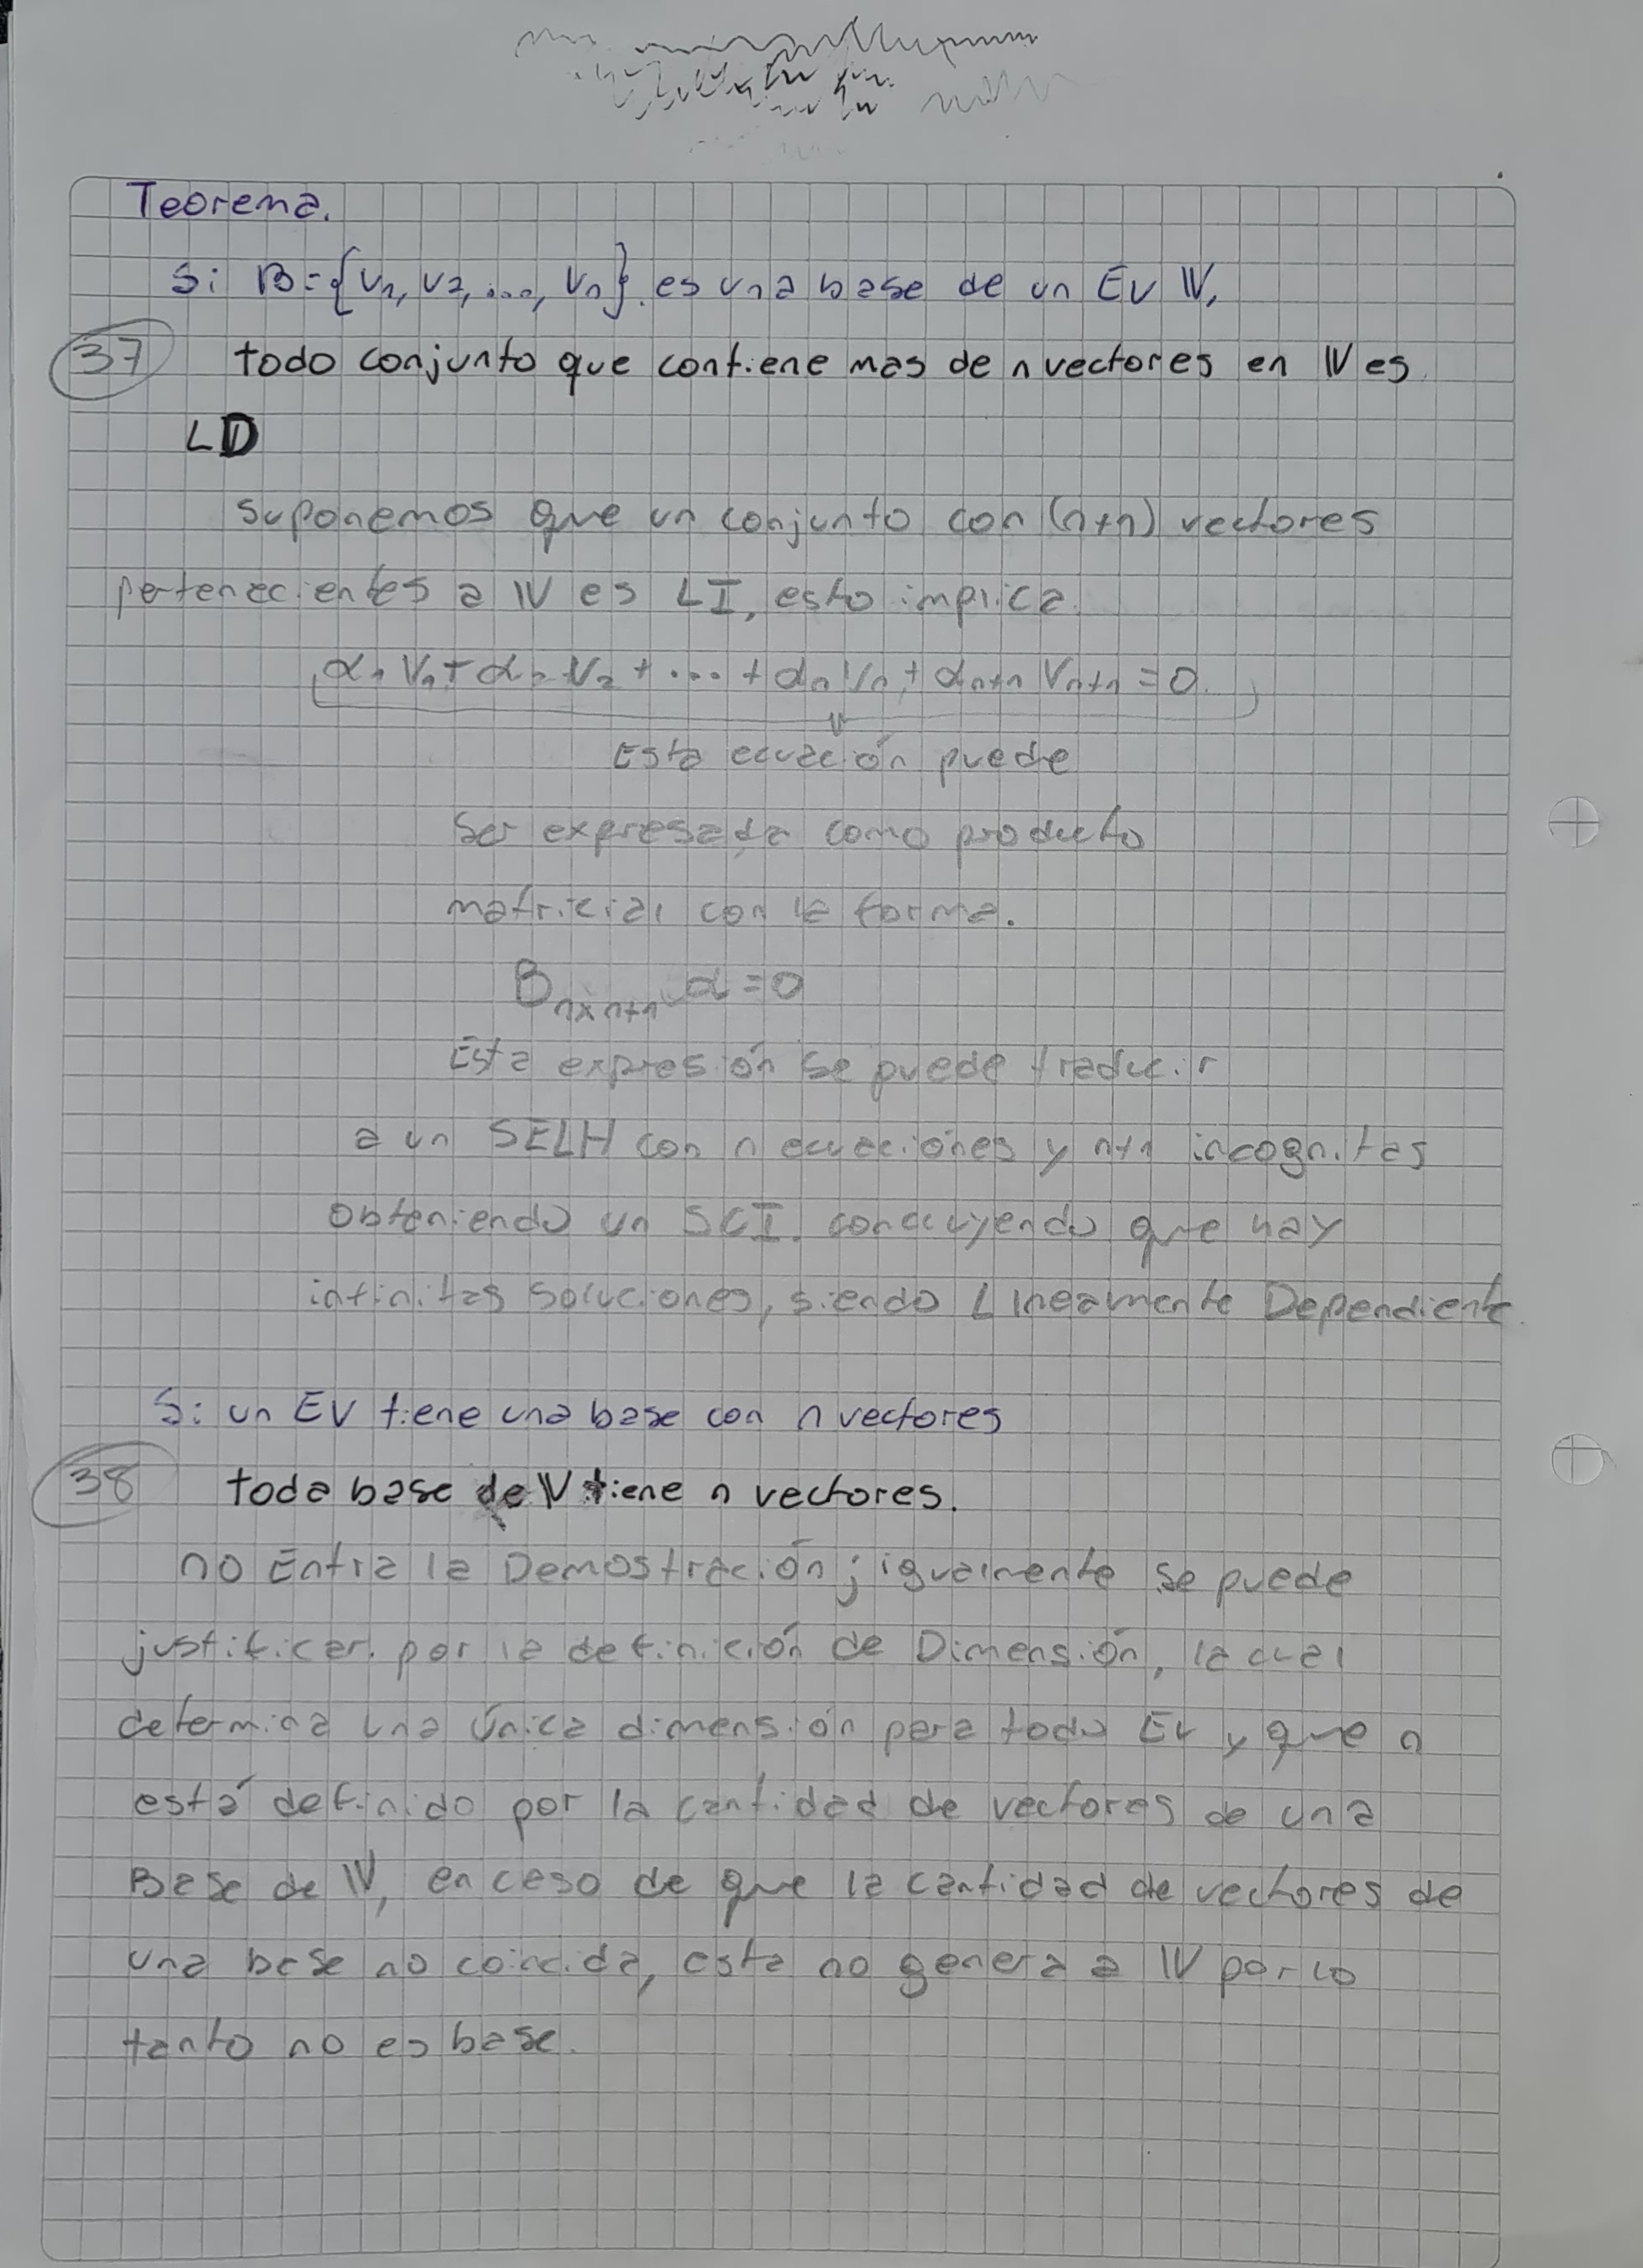 Teorema.
Si B={v1, v2, ..., vn} es una base de un EV V,
37 todo conjunto que contiene mas de n vectores en V es
LD
Suponemos que un conjunto con (n+1) vectores
pertenecientes a V es LI, esto implica.
α1 V1 + α2 V2 + ... + αn Vn + αn+1 Vn+1 = 0
Esta ecuación puede
Ser expresada como producto
matricial con la forma.
Bnxn+1 α = 0
Esta expresión se puede traducir
a un SELH con n ecuaciones y n+1 incognitas
obteniendo un SCI. concluyendo que hay
infinitas soluciones, siendo Lineamente Dependiente.
Si un EV tiene una base con n vectores
38 toda base de V tiene n vectores.
no Entra la Demostración; igualmente se puede
justificar. por la definición de Dimensión, la cual
determina una única dimensión para todo EV y que n
está definido por la cantidad de vectores de una
Base de V, en caso de que la cantidad de vectores de
una base no coincida, esta no genera a V por lo
tanto no es base.